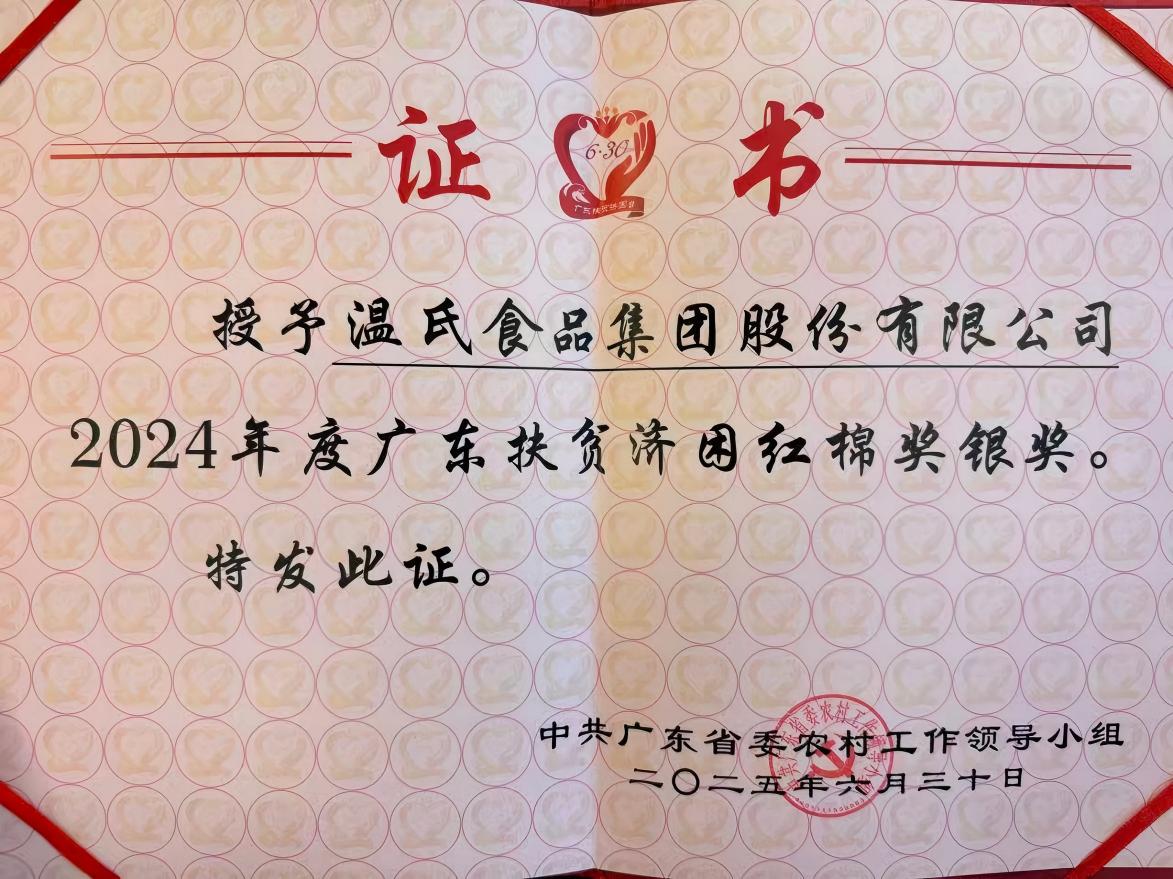 证 书
6·30
广东扶贫济困日
授予温氏食品集团股份有限公司
2024年度广东扶贫济困红棉奖银奖。
特发此证。
中共广东省委农村工作领导小组
二〇二五年六月三十日